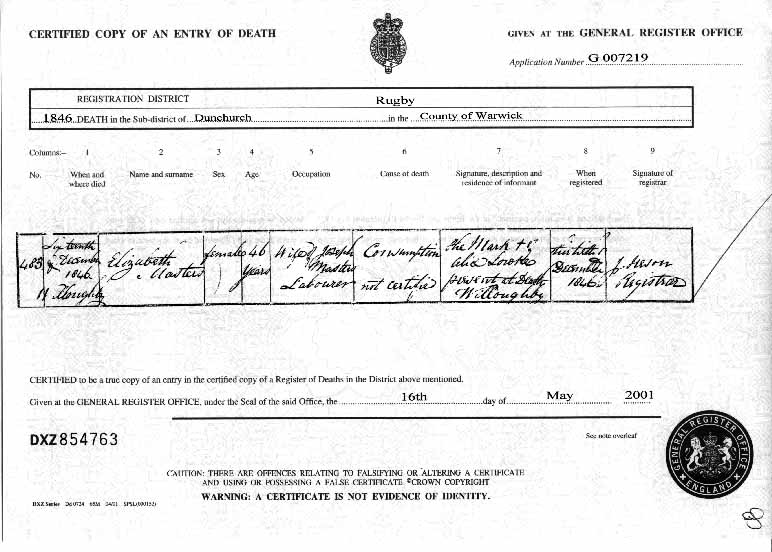 CERTIFIED COPY OF AN ENTRY OF DEATH
GIVEN AT THE GENERAL REGISTER OFFICE
Application Number G 007219
REGISTRATION DISTRICT Rugby
1846 DEATH in the Sub-district of Dunchurch in the County of Warwick
Columns:- 1 2 3 4 5 6 7 8 9
No. When and where died Name and surname Sex Age Occupation Cause of death Signature, description and residence of informant When registered Signature of registrar
483 Sixteenth of December 1846 Willoughby
Elizabeth Masters
female
46 years
Wife of Joseph Masters Labourer
Consumption not certified
The Mark + of present at Death Willoughby
December 1846
Registrar
CERTIFIED to be a true copy of an entry in the certified copy of a Register of Deaths in the District above mentioned.
Given at the GENERAL REGISTER OFFICE, under the Seal of the said Office, the 16th day of May 2001
DXZ 854763
See note overleaf
CAUTION: THERE ARE OFFENCES RELATING TO FALSIFYING OR ALTERING A CERTIFICATE
AND USING OR POSSESSING A FALSE CERTIFICATE ©CROWN COPYRIGHT
WARNING: A CERTIFICATE IS NOT EVIDENCE OF IDENTITY.
GENERAL REGISTER OFFICE ENGLAND